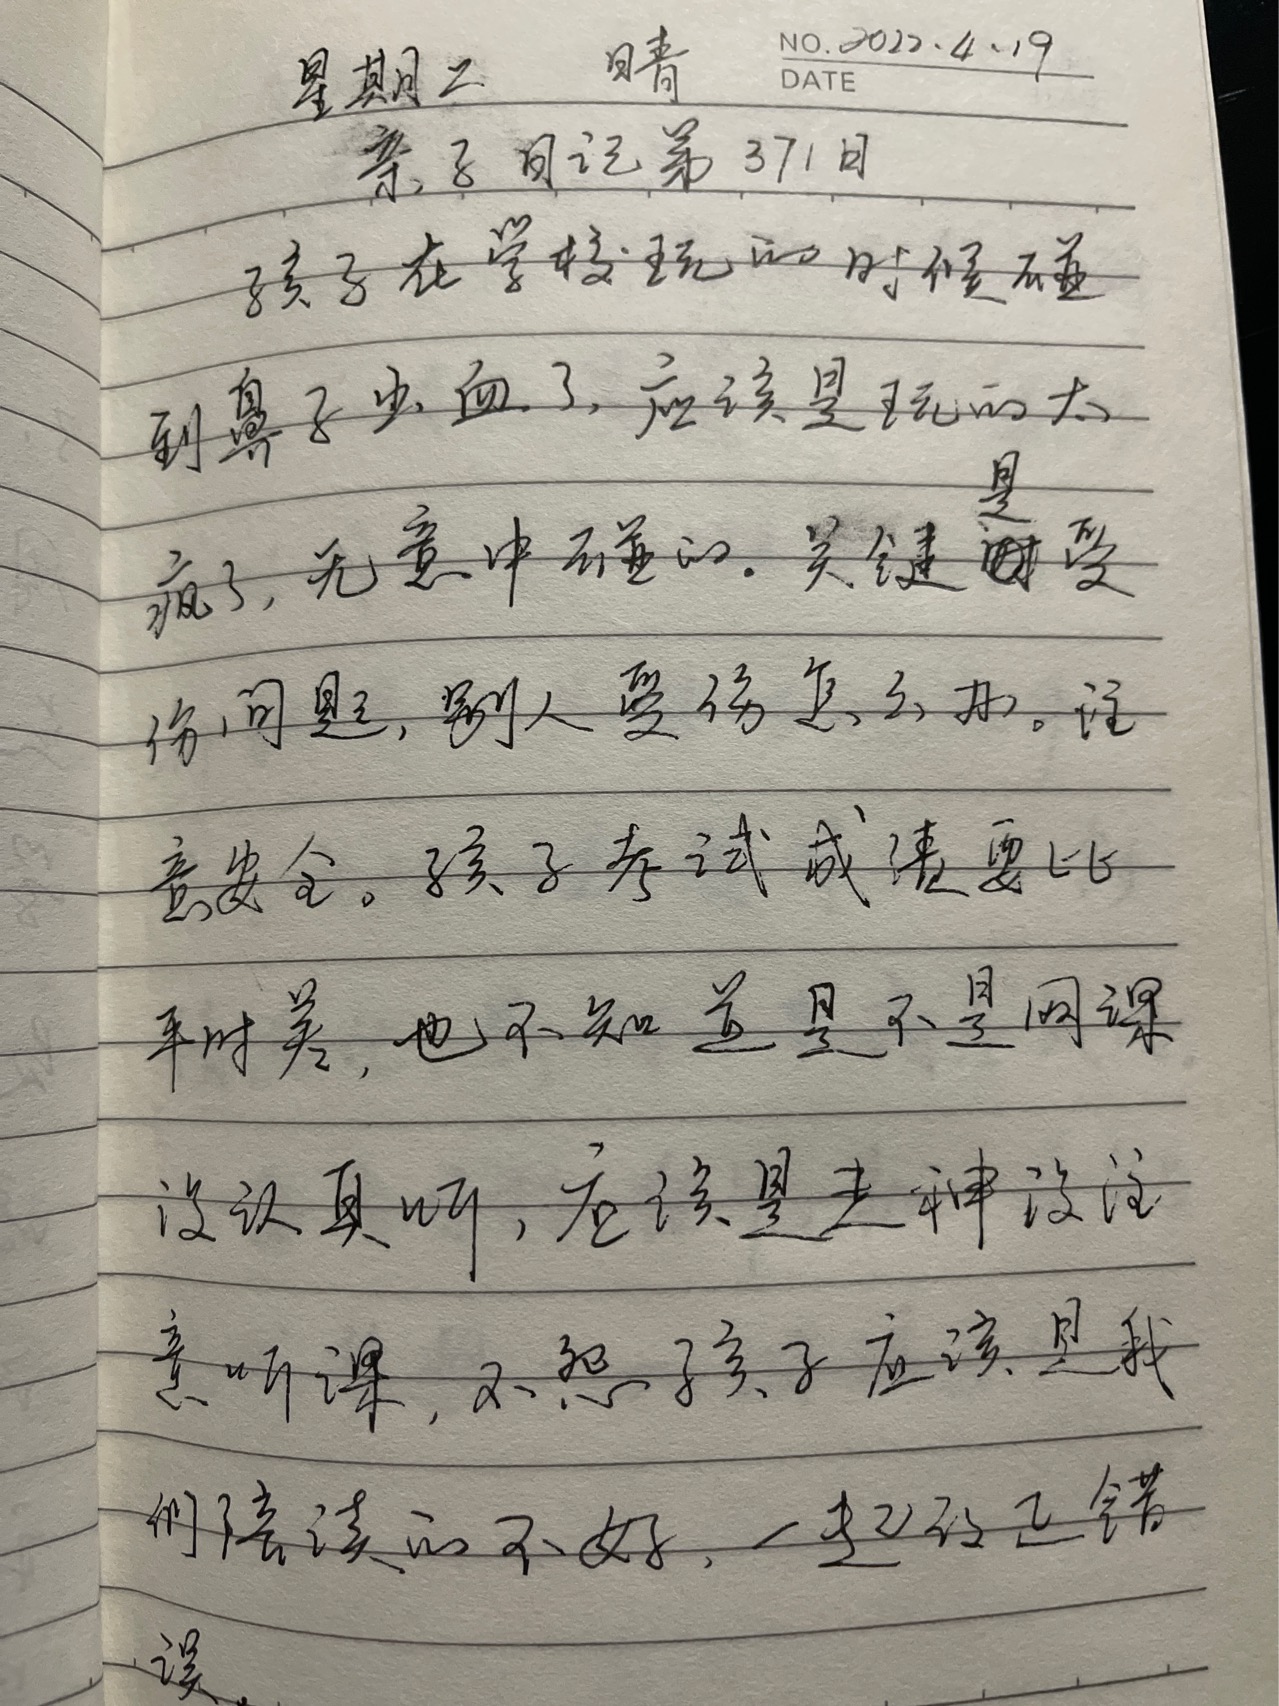 星期二 晴 NO. 2022.4.19
DATE
亲子日记第371日
孩子在学校玩的时候碰
到鼻子出血了，应该是玩的太
疯了，无意中碰的。关键是受
伤问题，别人受伤怎么办。注
意安全。孩子考试成绩要比
平时差，也不知道是不是网课
没认真听，应该是走神没注
意听课，不怨孩子应该是我
们陪读的不好，一起改正错
误。